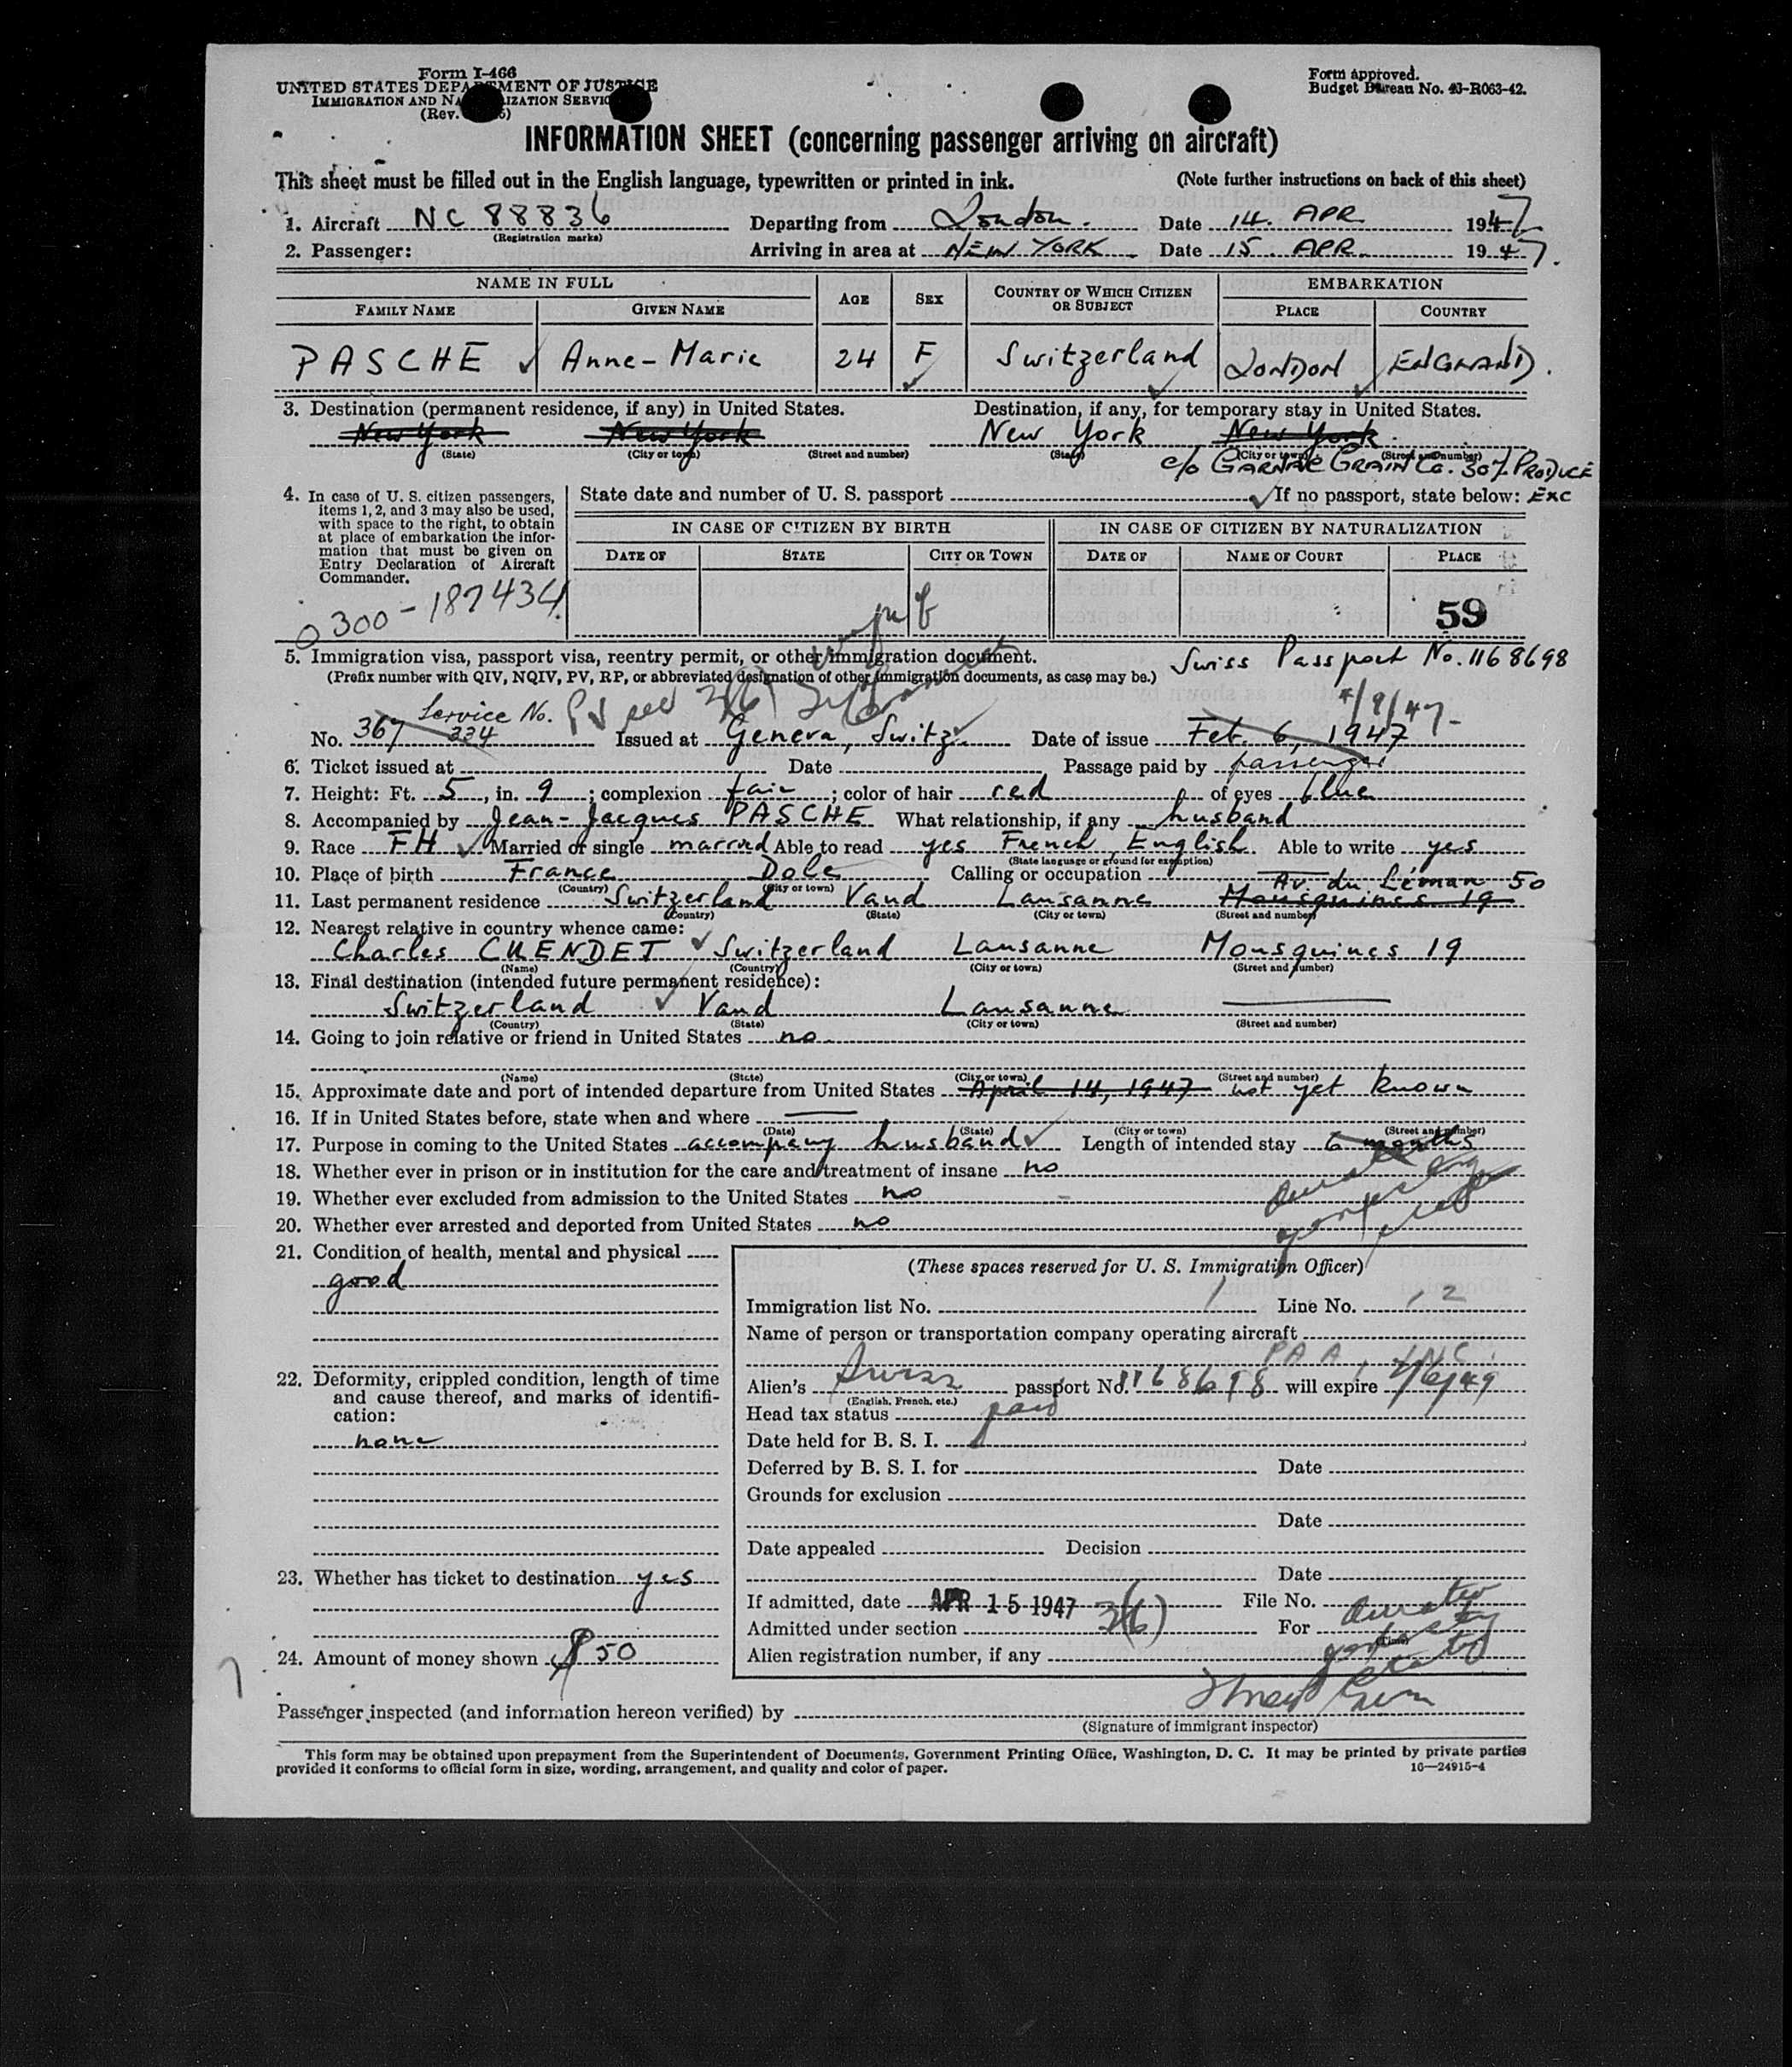 Form I-466
UNITED STATES DEPARTMENT OF JUSTICE
IMMIGRATION AND NATURALIZATION SERVICE
(Rev.
Form approved.
Budget Bureau No. 43-R063-42.
INFORMATION SHEET (concerning passenger arriving on aircraft)
This sheet must be filled out in the English language, typewritten or printed in ink. (Note further instructions on back of this sheet)
1. Aircraft NC 88836 Departing from London. Date 14. APR. 1947
(Registration marks)
2. Passenger: Arriving in area at NEW YORK Date 15. APR. 1947.
NAME IN FULL AGE SEX COUNTRY OF WHICH CITIZEN OR SUBJECT EMBARKATION
FAMILY NAME GIVEN NAME PLACE COUNTRY
PASCHE Anne-Marie 24 F Switzerland LONDON ENGLAND.
3. Destination (permanent residence, if any) in United States. Destination, if any, for temporary stay in United States.
New York New York New York New York
(State) (City or town) (Street and number) (State) (City or town) (Street and number)
c/o GARNAC GRAIN Co. 307 PRODUCE
EXC
4. In case of U. S. citizen passengers,
items 1, 2, and 3 may also be used,
with space to the right, to obtain
at place of embarkation the infor-
mation that must be given on
Entry Declaration of Aircraft
Commander.
0300-187434
State date and number of U. S. passport If no passport, state below:
IN CASE OF CITIZEN BY BIRTH IN CASE OF CITIZEN BY NATURALIZATION
DATE OF STATE CITY OR TOWN DATE OF NAME OF COURT PLACE
59
5. Immigration visa, passport visa, reentry permit, or other immigration document. Swiss Passport No. 1168698
(Prefix number with QIV, NQIV, PV, RP, or abbreviated designation of other immigration documents, as case may be.)
Service No. PV sec 3(6) 4/8/47
No. 367 334 Issued at Geneva, Switz. Date of issue Feb. 6, 1947
6. Ticket issued at Date Passage paid by passenger
7. Height: Ft. 5, in. 9; complexion fair; color of hair red of eyes blue
8. Accompanied by Jean-Jacques PASCHE What relationship, if any husband
9. Race FH Married or single married Able to read yes French, English. Able to write yes
(State language or ground for exemption)
10. Place of birth France Dole Calling or occupation
(Country) (City or town)
Av. du Léman 50
11. Last permanent residence Switzerland Vaud Lausanne Mousquines 19
(Country) (State) (City or town) (Street and number)
12. Nearest relative in country whence came:
Charles CUENDET Switzerland Lausanne Mousquines 19
(Name) (Country) (City or town) (Street and number)
13. Final destination (intended future permanent residence):
Switzerland Vaud Lausanne
(Country) (State) (City or town) (Street and number)
14. Going to join relative or friend in United States no
(Name) (State) (City or town) (Street and number)
15. Approximate date and port of intended departure from United States April 14, 1947 not yet known
16. If in United States before, state when and where
(Date) (State) (City or town) (Street and number)
17. Purpose in coming to the United States accompany husband Length of intended stay 6 months
18. Whether ever in prison or in institution for the care and treatment of insane no
19. Whether ever excluded from admission to the United States no
20. Whether ever arrested and deported from United States no
21. Condition of health, mental and physical
good
22. Deformity, crippled condition, length of time
and cause thereof, and marks of identifi-
cation:
none
23. Whether has ticket to destination yes
24. Amount of money shown $50
(These spaces reserved for U. S. Immigration Officer)
Immigration list No. 1 Line No. 12
Name of person or transportation company operating aircraft
PAA, INC.
Alien's Swiss passport No. 1168698 will expire 2/6/49
(English, French, etc.)
Head tax status paid
Date held for B. S. I.
Deferred by B. S. I. for Date
Grounds for exclusion
Date
Date appealed Decision
Date
If admitted, date APR 15 1947 File No.
Admitted under section 3(6) For
(Time)
Alien registration number, if any
Passenger inspected (and information hereon verified) by
(Signature of immigrant inspector)
This form may be obtained upon prepayment from the Superintendent of Documents, Government Printing Office, Washington, D. C. It may be printed by private parties
provided it conforms to official form in size, wording, arrangement, and quality and color of paper. 16—24915-4